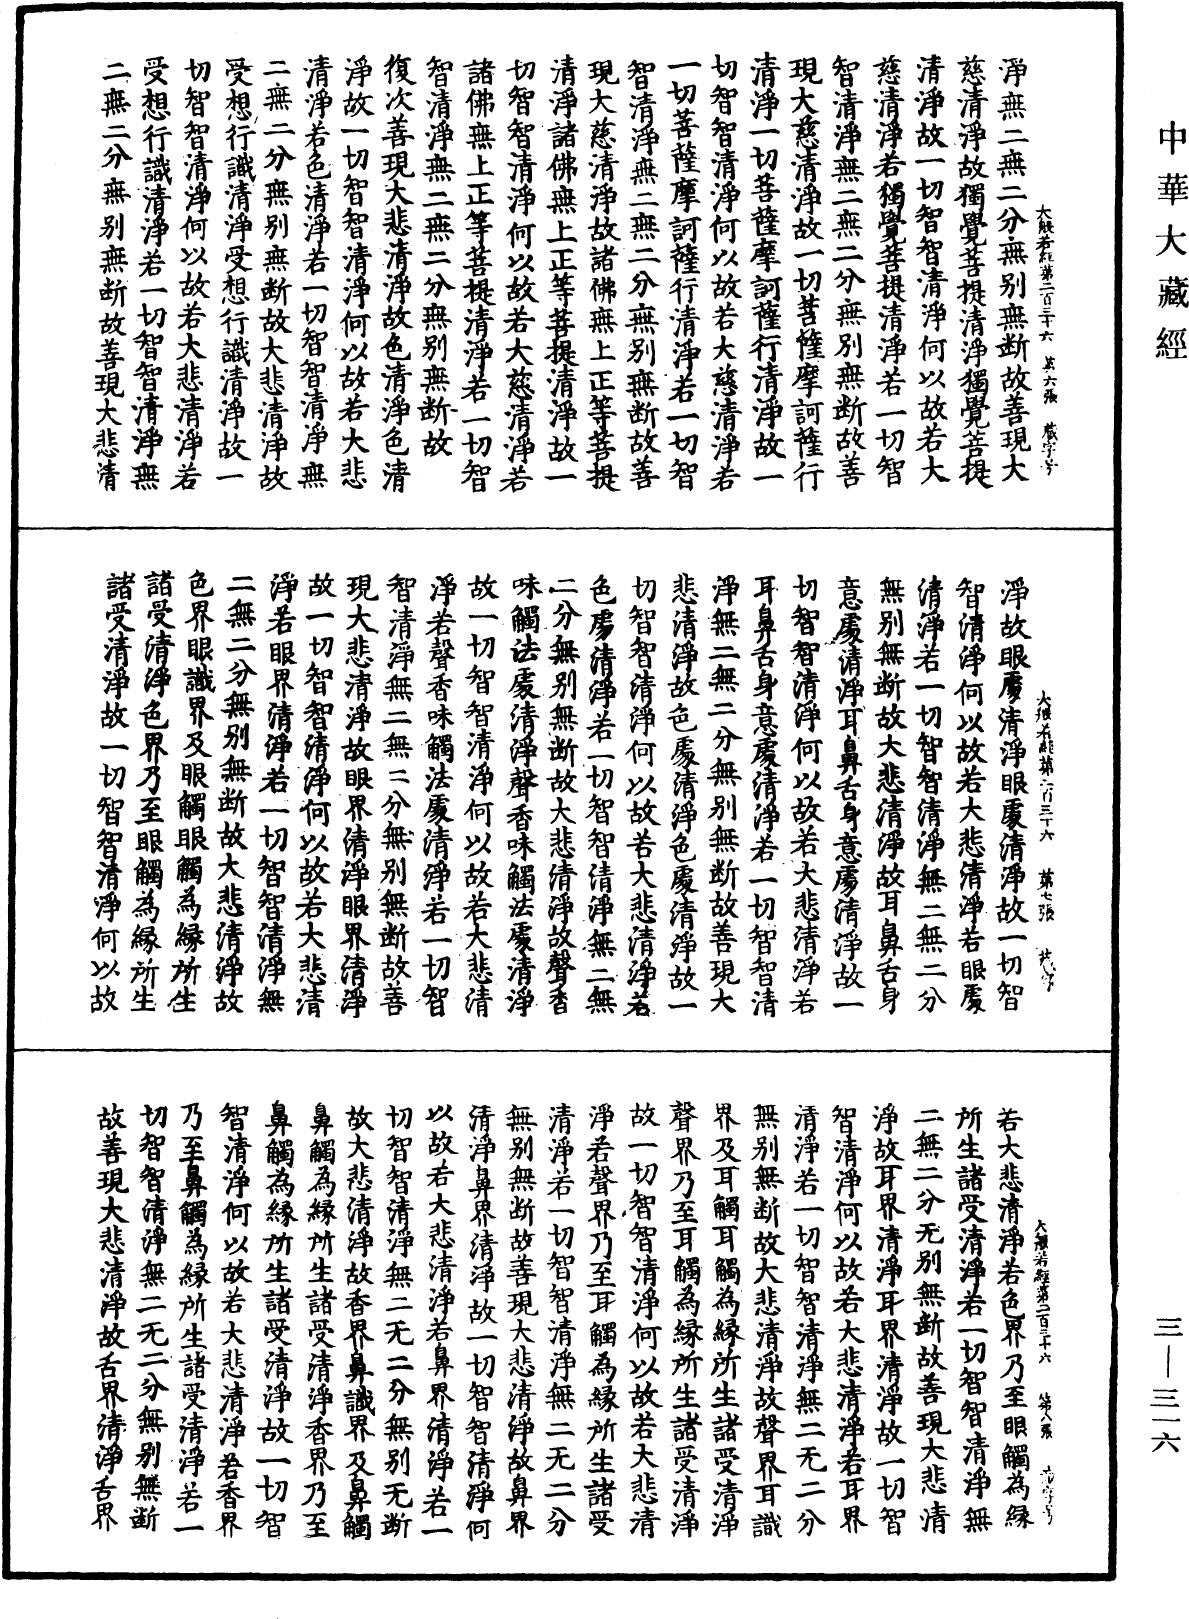 中華大藏經
淨無二無二分無別無断故善現大
慈清淨故獨覺菩提清淨獨覺菩提
清淨故一切智智清淨何以故若大
慈清淨若獨覺菩提清淨若一切智
智清淨無二無二分無別無断故善
現大慈清淨故一切菩薩摩訶薩行
清淨一切菩薩摩訶薩行清淨故一
切智智清淨何以故若大慈清淨若
一切菩薩摩訶薩行清淨若一切智
智清淨無二無二分無別無断故善
現大慈清淨故諸佛無上正等菩提
清淨諸佛無上正等菩提清淨故一
切智智清淨何以故若大慈清淨若
諸佛無上正等菩提清淨若一切智
智清淨無二無二分無別無断故
復次善現大悲清淨故色清淨色清
淨故一切智智清淨何以故若大悲
清淨若色清淨若一切智智清淨無
二無二分無別無断故大悲清淨故
受想行識清淨受想行識清淨故一
切智智清淨何以故若大悲清淨若
受想行識清淨若一切智智清淨無
二無二分無別無断故善現大悲清
大般若經第二百三十六 第六張
淨故眼處清淨眼處清淨故一切智
智清淨何以故若大悲清淨若眼處
清淨若一切智智清淨無二無二分
無別無断故大悲清淨故耳鼻舌身
意處清淨耳鼻舌身意處清淨故一
切智智清淨何以故若大悲清淨若
耳鼻舌身意處清淨若一切智智清
淨無二無二分無別無断故善現大
悲清淨故色處清淨色處清淨故一
切智智清淨何以故若大悲清淨若
色處清淨若一切智智清淨無二無
二分無別無断故大悲清淨故聲香
味觸法處清淨聲香味觸法處清淨
故一切智智清淨何以故若大悲清
淨若聲香味觸法處清淨若一切智
智清淨無二無二分無別無断故善
現大悲清淨故眼界清淨眼界清淨
故一切智智清淨何以故若大悲清
淨若眼界清淨若一切智智清淨無
二無二分無別無断故大悲清淨故
色界眼識界及眼觸眼觸為緣所生
諸受清淨色界乃至眼觸為緣所生
諸受清淨故一切智智清淨何以故
大般若經第二百三十六 第七張
若大悲清淨若色界乃至眼觸為緣
所生諸受清淨若一切智智清淨無
二無二分无別無断故善現大悲清
淨故耳界清淨耳界清淨故一切智
智清淨何以故若大悲清淨若耳界
清淨若一切智智清淨無二无二分
無別無断故大悲清淨故聲界耳識
界及耳觸耳觸為緣所生諸受清淨
聲界乃至耳觸為緣所生諸受清淨
故一切智智清淨何以故若大悲清
淨若聲界乃至耳觸為緣所生諸受
清淨若一切智智清淨無二无二分
無別無断故善現大悲清淨故鼻界
清淨鼻界清淨故一切智智清淨何
以故若大悲清淨若鼻界清淨若一
切智智清淨無二无二分無別无断
故大悲清淨故香界鼻識界及鼻觸
鼻觸為緣所生諸受清淨香界乃至
鼻觸為緣所生諸受清淨故一切智
智清淨何以故若大悲清淨若香界
乃至鼻觸為緣所生諸受清淨若一
切智智清淨無二无二分無別無断
故善現大悲清淨故舌界清淨舌界
大般若經第二百三十六 第八張
三—三一六